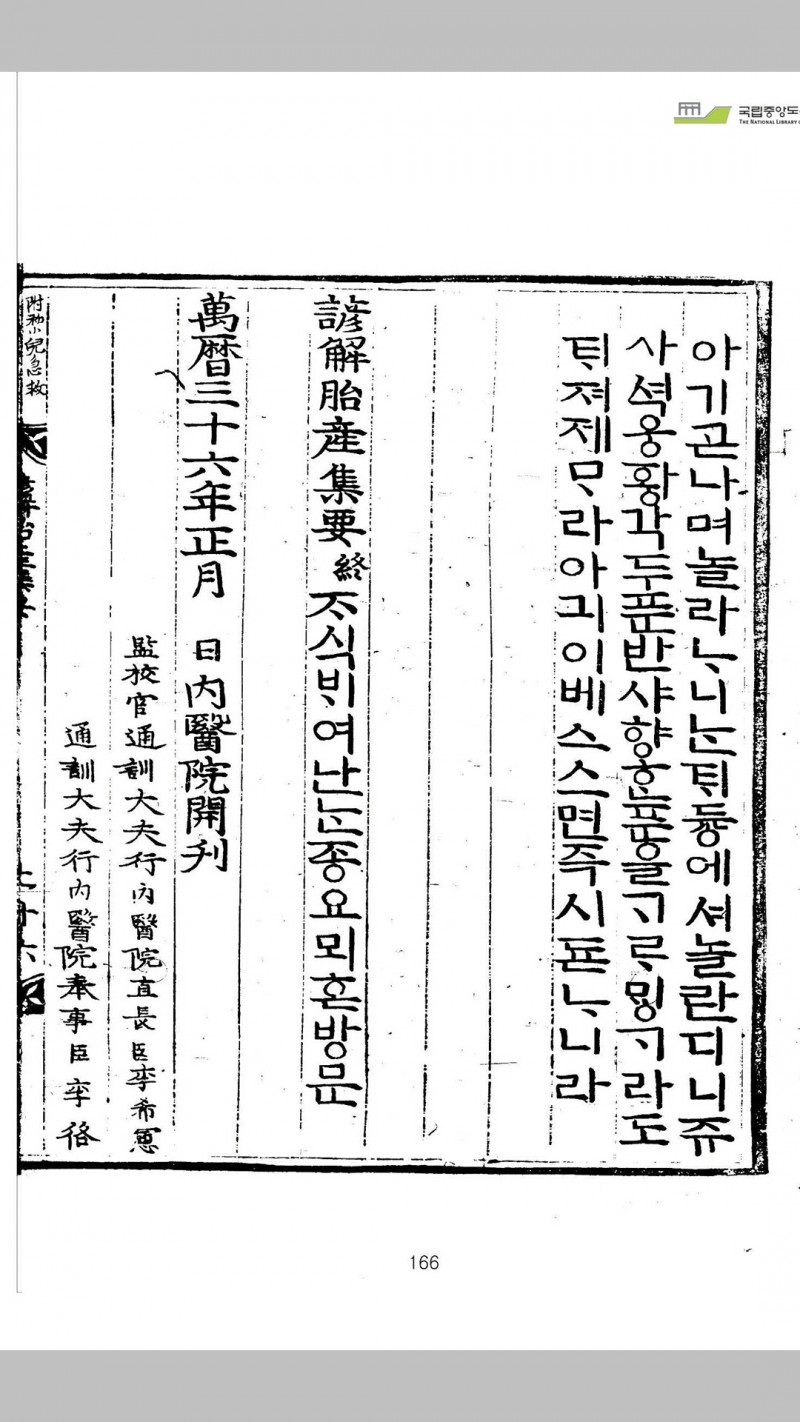 국립중앙도
THE NATIONAL LIBRARY
아기곧나며놀라ᄂᆞ니ᄂᆞᆫᄐᆡ듕에셔놀란디니쥬
사셕웅황각두푼반샤향ᄒᆞᆫ푼을ᄀᆞᄅᆞᄆᆡᆼᄀᆞ라도
ᄐᆡ져제ᄆᆞ라아긔이베스스면즉시됸ᄂᆞ니라
諺解胎産集要 終 ᄌᆞ식ᄇᆡ여난ᄂᆞᆫ종요뢰혼방문
萬曆三十六年正月 日內醫院開刊
監校官通訓大夫行內醫院直長臣李希憲
通訓大夫行內醫院奉事臣李
附初小兒急救
166